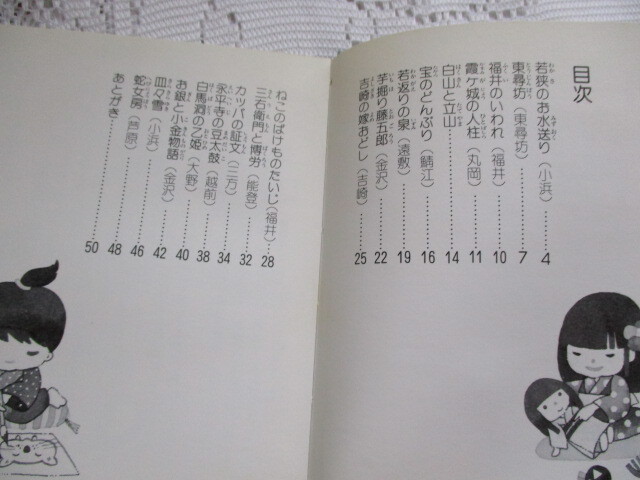 目次
若狭のお水送り(小浜)…………4
東尋坊(東尋坊)…………7
福井のいわれ(福井)…………10
霞ケ城の人柱(丸岡)…………11
白山と立山…………14
宝のどんぶり(鯖江)…………16
若返りの泉(遠敷)…………19
芋掘り藤五郎(金沢)…………22
吉崎の嫁おどし(吉崎)…………25
ねこのばけものたいじ(福井)……28
三右衛門と博労(能登)…………32
カッパの証文(三方)…………34
永平寺の豆太鼓(越前)…………38
白馬洞の乙姫(大野)…………40
お銀と小金物語(金沢)…………42
皿々雪(小浜)…………46
蛇女房(芦原)…………48
あとがき…………50